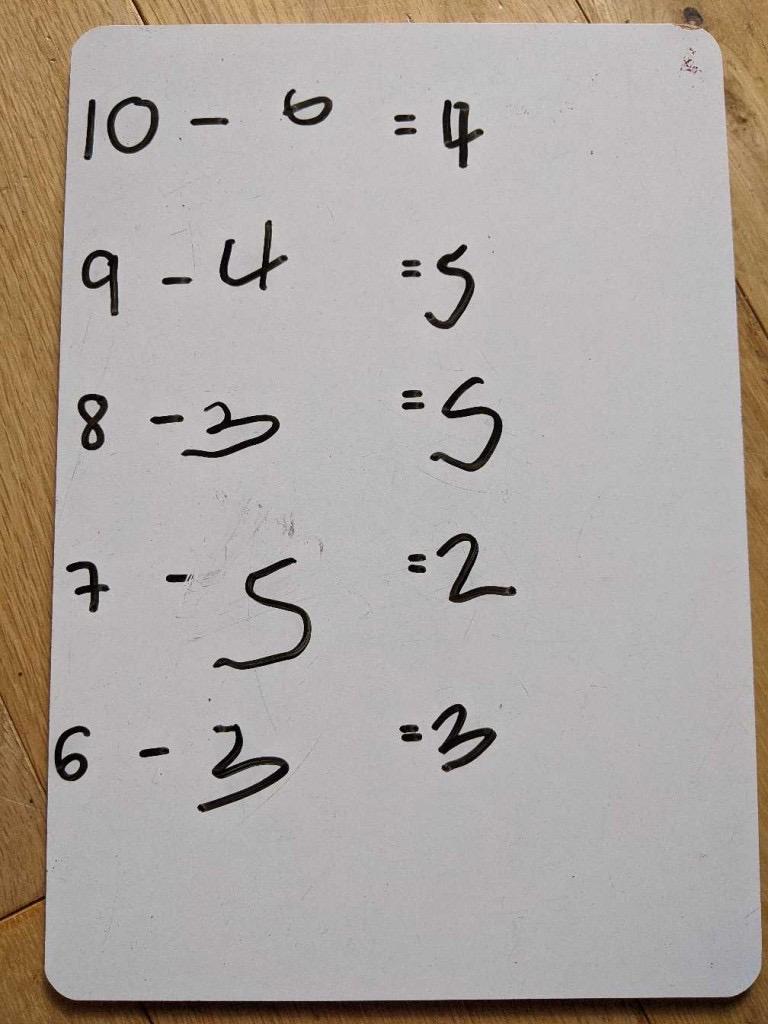 10 - 6 = 4
9 - 4 = 5
8 - 3 = 5
7 - 5 = 2
6 - 3 = 3